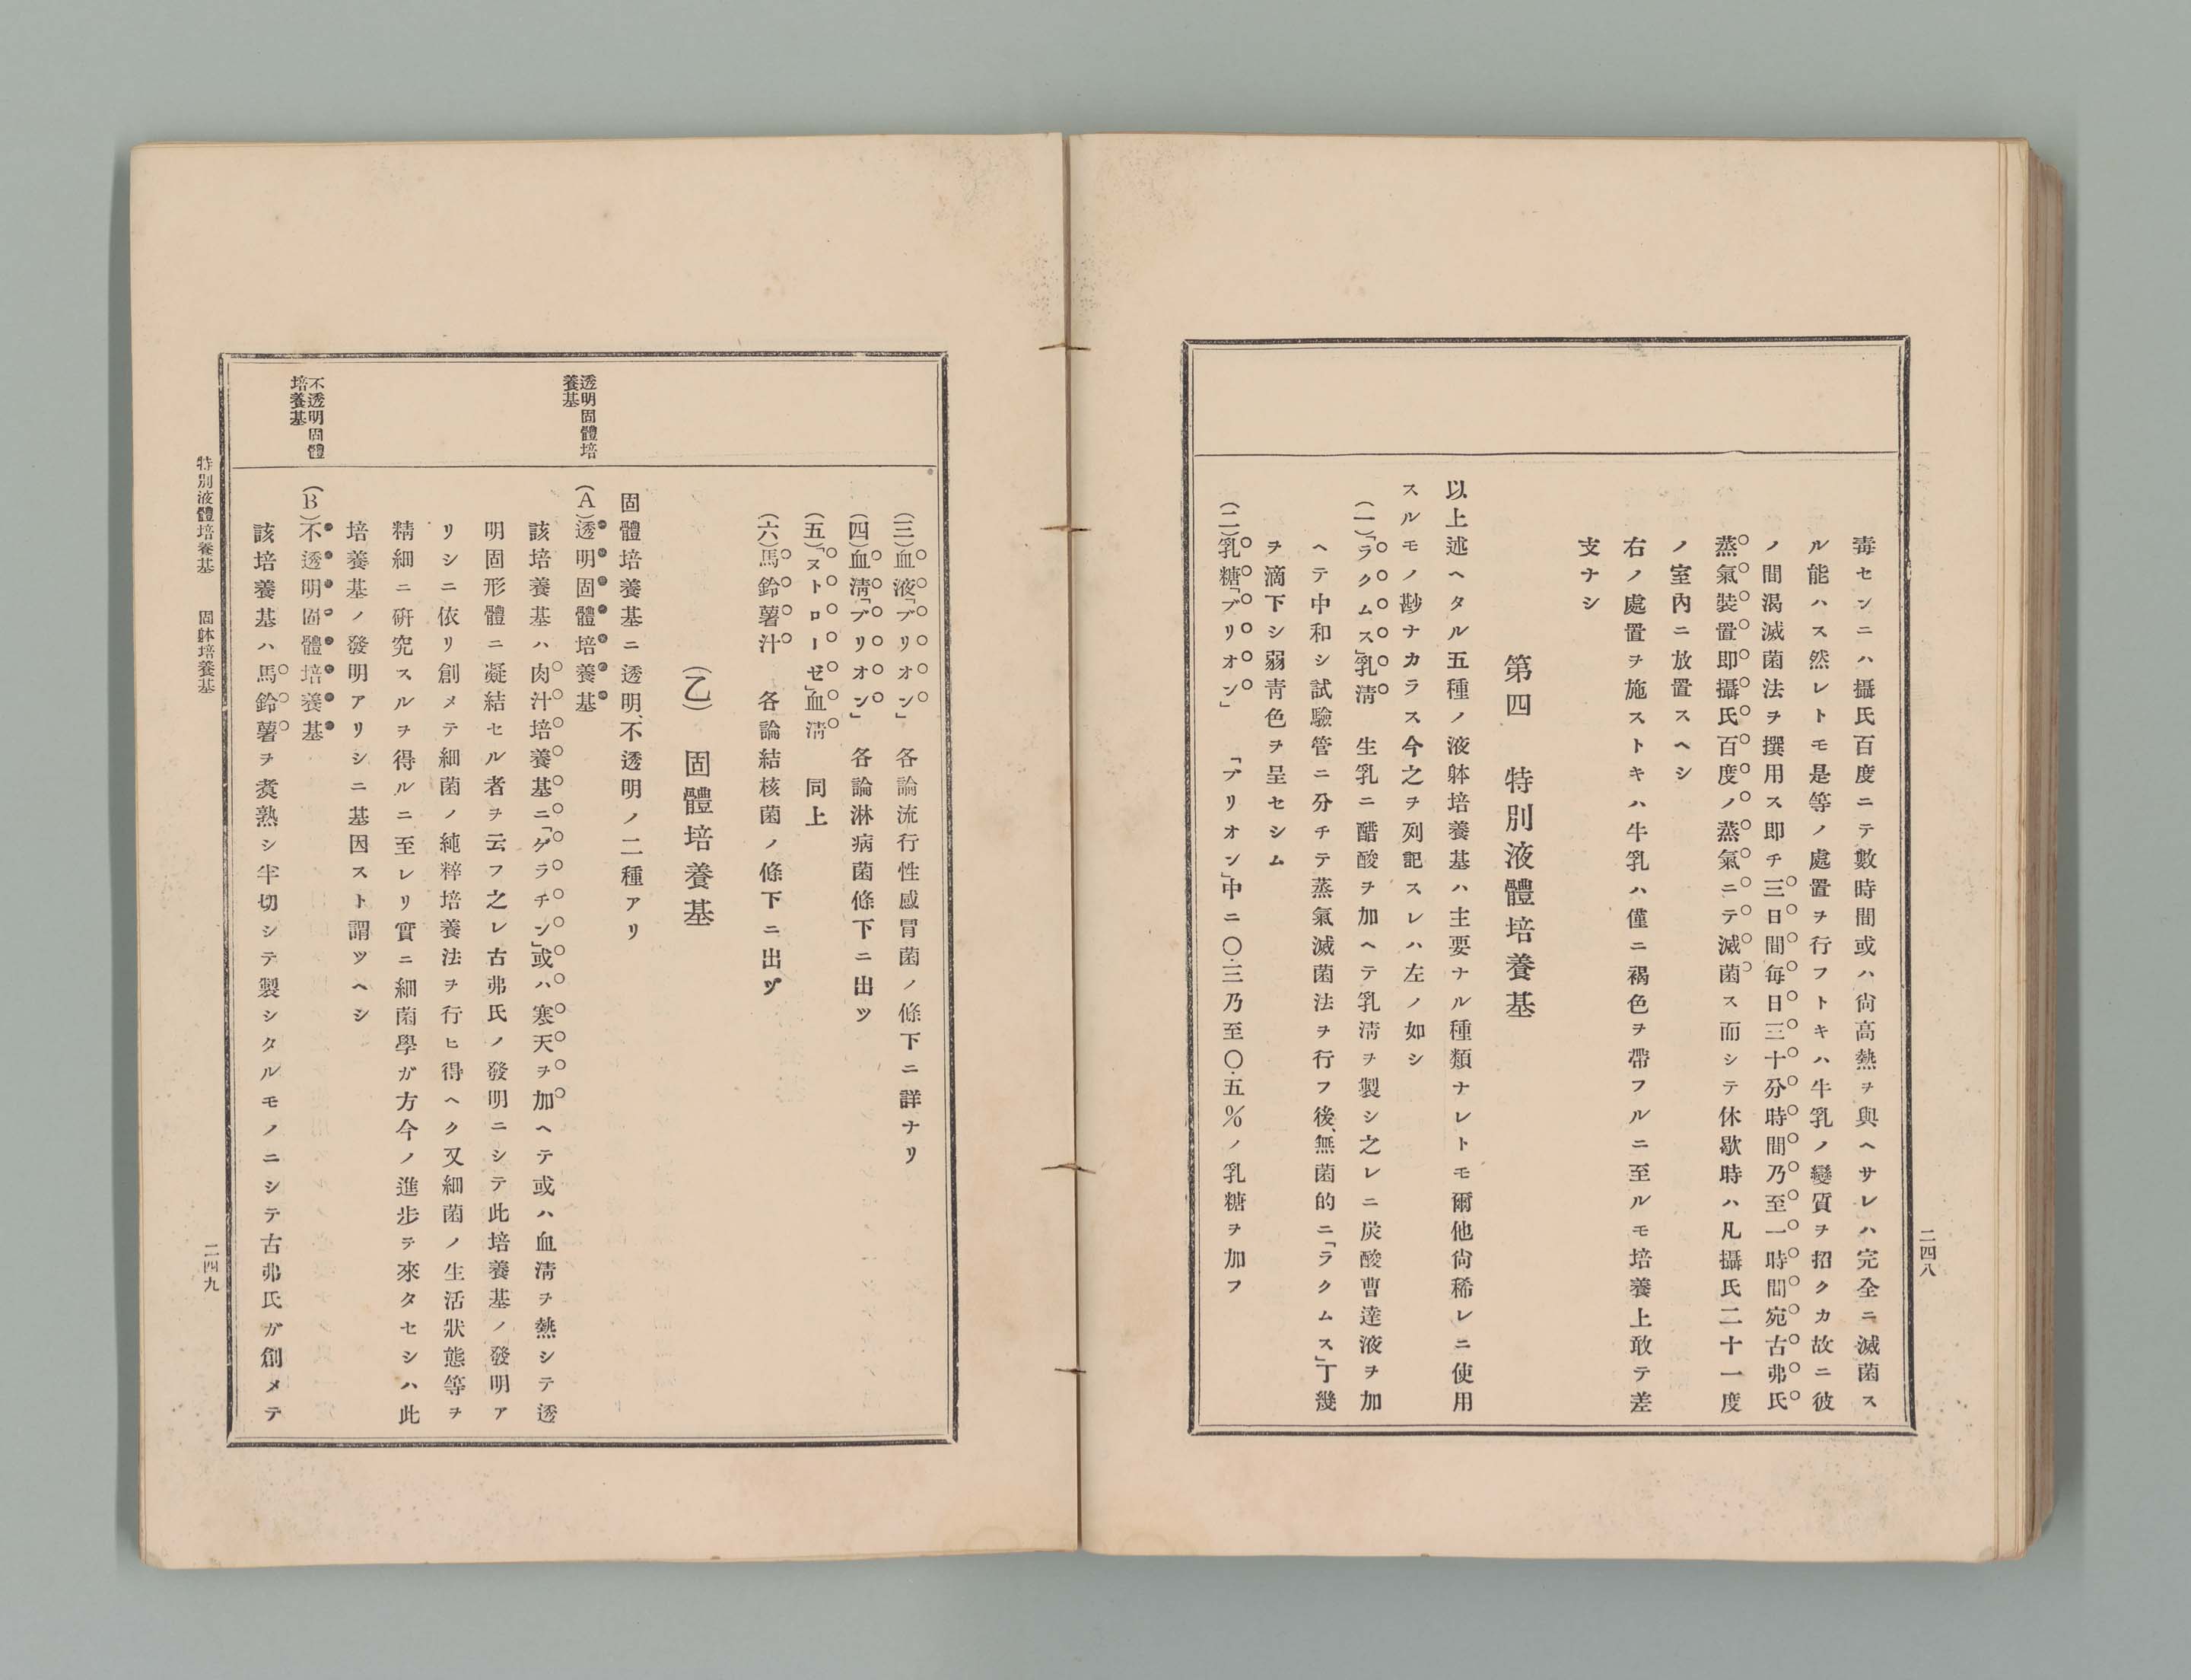 毒センニハ攝氏百度ニテ數時間或ハ尙高熱ヲ與ヘサレハ完全ニ滅菌ス
ル能ハス然レトモ是等ノ處置ヲ行フトキハ牛乳ノ變質ヲ招クカ故ニ彼
ノ間渴滅菌法ヲ撰用ス卽チ三日間每日三十分時間乃至一時間宛古弗氏
蒸氣裝置卽攝氏百度ノ蒸氣ニテ滅菌ス而シテ休歇時ハ凡攝氏二十一度
ノ室內ニ放置スヘシ
右ノ處置ヲ施ストキハ牛乳ハ僅ニ褐色ヲ帶フルニ至ルモ培養上敢テ差
支ナシ
第四　特別液體培養基
以上述ヘタル五種ノ液躰培養基ハ主要ナル種類ナレトモ爾他尙稀レニ使用
スルモノ尠ナカラス今之ヲ列記スレハ左ノ如シ
(一)「ラクムス」乳淸　生乳ニ醋酸ヲ加ヘテ乳淸ヲ製シ之レニ炭酸曹達液ヲ加
ヘテ中和シ試驗管ニ分チテ蒸氣滅菌法ヲ行フ後、無菌的ニ「ラクムス」丁幾
ヲ滴下シ弱靑色ヲ呈セシム
(二)乳糖「ブリオン」　「ブリオン」中ニ〇.三乃至〇.五%ノ乳糖ヲ加フ
二四八
(三)血液「ブリオン」　各論流行性感冒菌ノ條下ニ詳ナリ
(四)血淸「ブリオン」　各論淋病菌條下ニ出ツ
(五)「ヌトローゼ」血淸　同上
(六)馬鈴薯汁　各論結核菌ノ條下ニ出ヅ
(乙)　固體培養基
固體培養基ニ透明、不透明ノ二種アリ
透明固體培
養基
(A)透明固體培養基
該培養基ハ肉汁培養基ニ「ゲラチン」或ハ寒天ヲ加ヘテ或ハ血淸ヲ熱シテ透
明固形體ニ凝結セル者ヲ云フ之レ古弗氏ノ發明ニシテ此培養基ノ發明ア
リシニ依リ創メテ細菌ノ純粹培養法ヲ行ヒ得ヘク又細菌ノ生活狀態等ヲ
精細ニ硏究スルヲ得ルニ至レリ實ニ細菌學ガ方今ノ進步ヲ來タセシハ此
培養基ノ發明アリシニ基因スト謂ツヘシ
不透明固體
培養基
(B)不透明固體培養基
該培養基ハ馬鈴薯ヲ煑熟シ半切シテ製シタルモノニシテ古弗氏ガ創メテ
特別液體培養基　固躰培養基
二四九